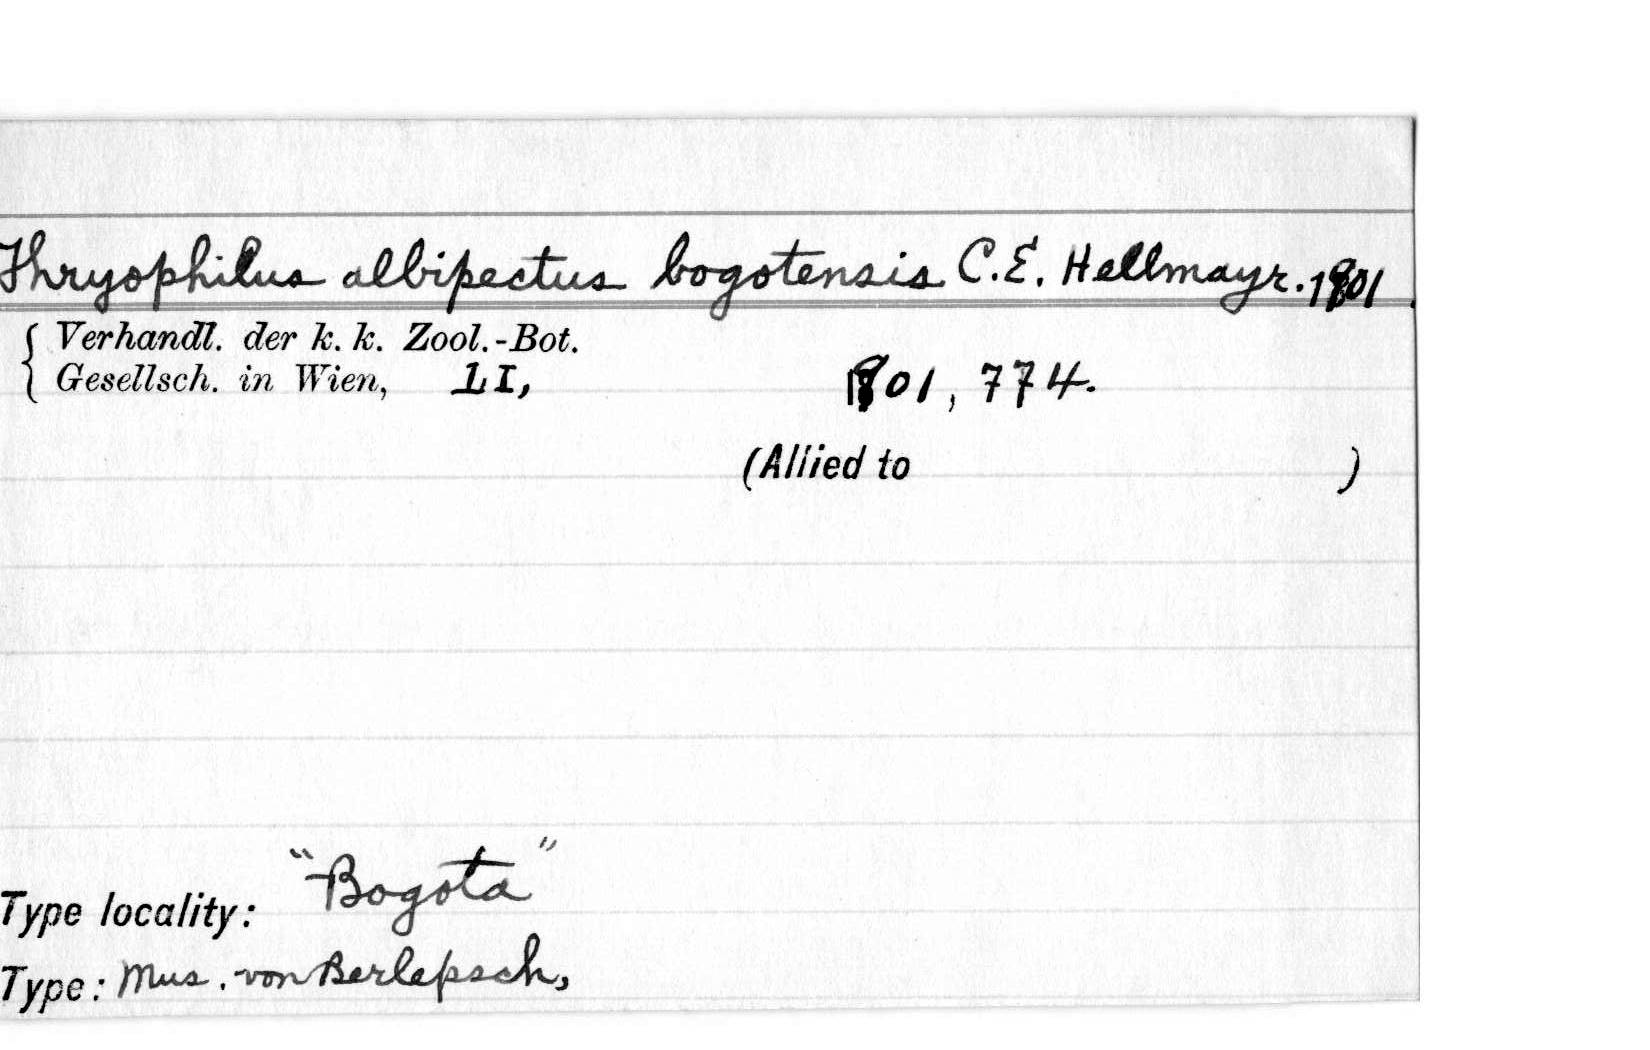 Thryophilus albipectus bogotensis C.E. Hellmayr. 1901.
Verhandl. der k. k. Zool.-Bot.
Gesellsch. in Wien, LI, 1901, 774.
(Allied to )
"Bogota"
Type locality:
Type: Mus. von Berlepsch,